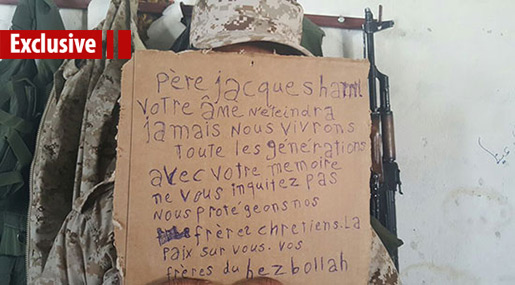 Exclusive
Père jacques haml
votre âme n'eteindra
jamais nous vivrons
toute les générations
avec votre memoire
ne vous inquitez pas
nous protégeons nos
frères chretiens. La
paix sur vous. vos
frères du hezbollah